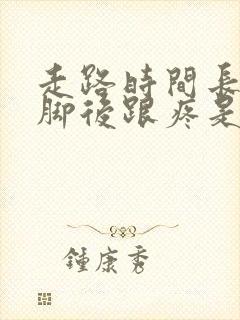 走路時間長
腳後跟疼是
鍾康秀